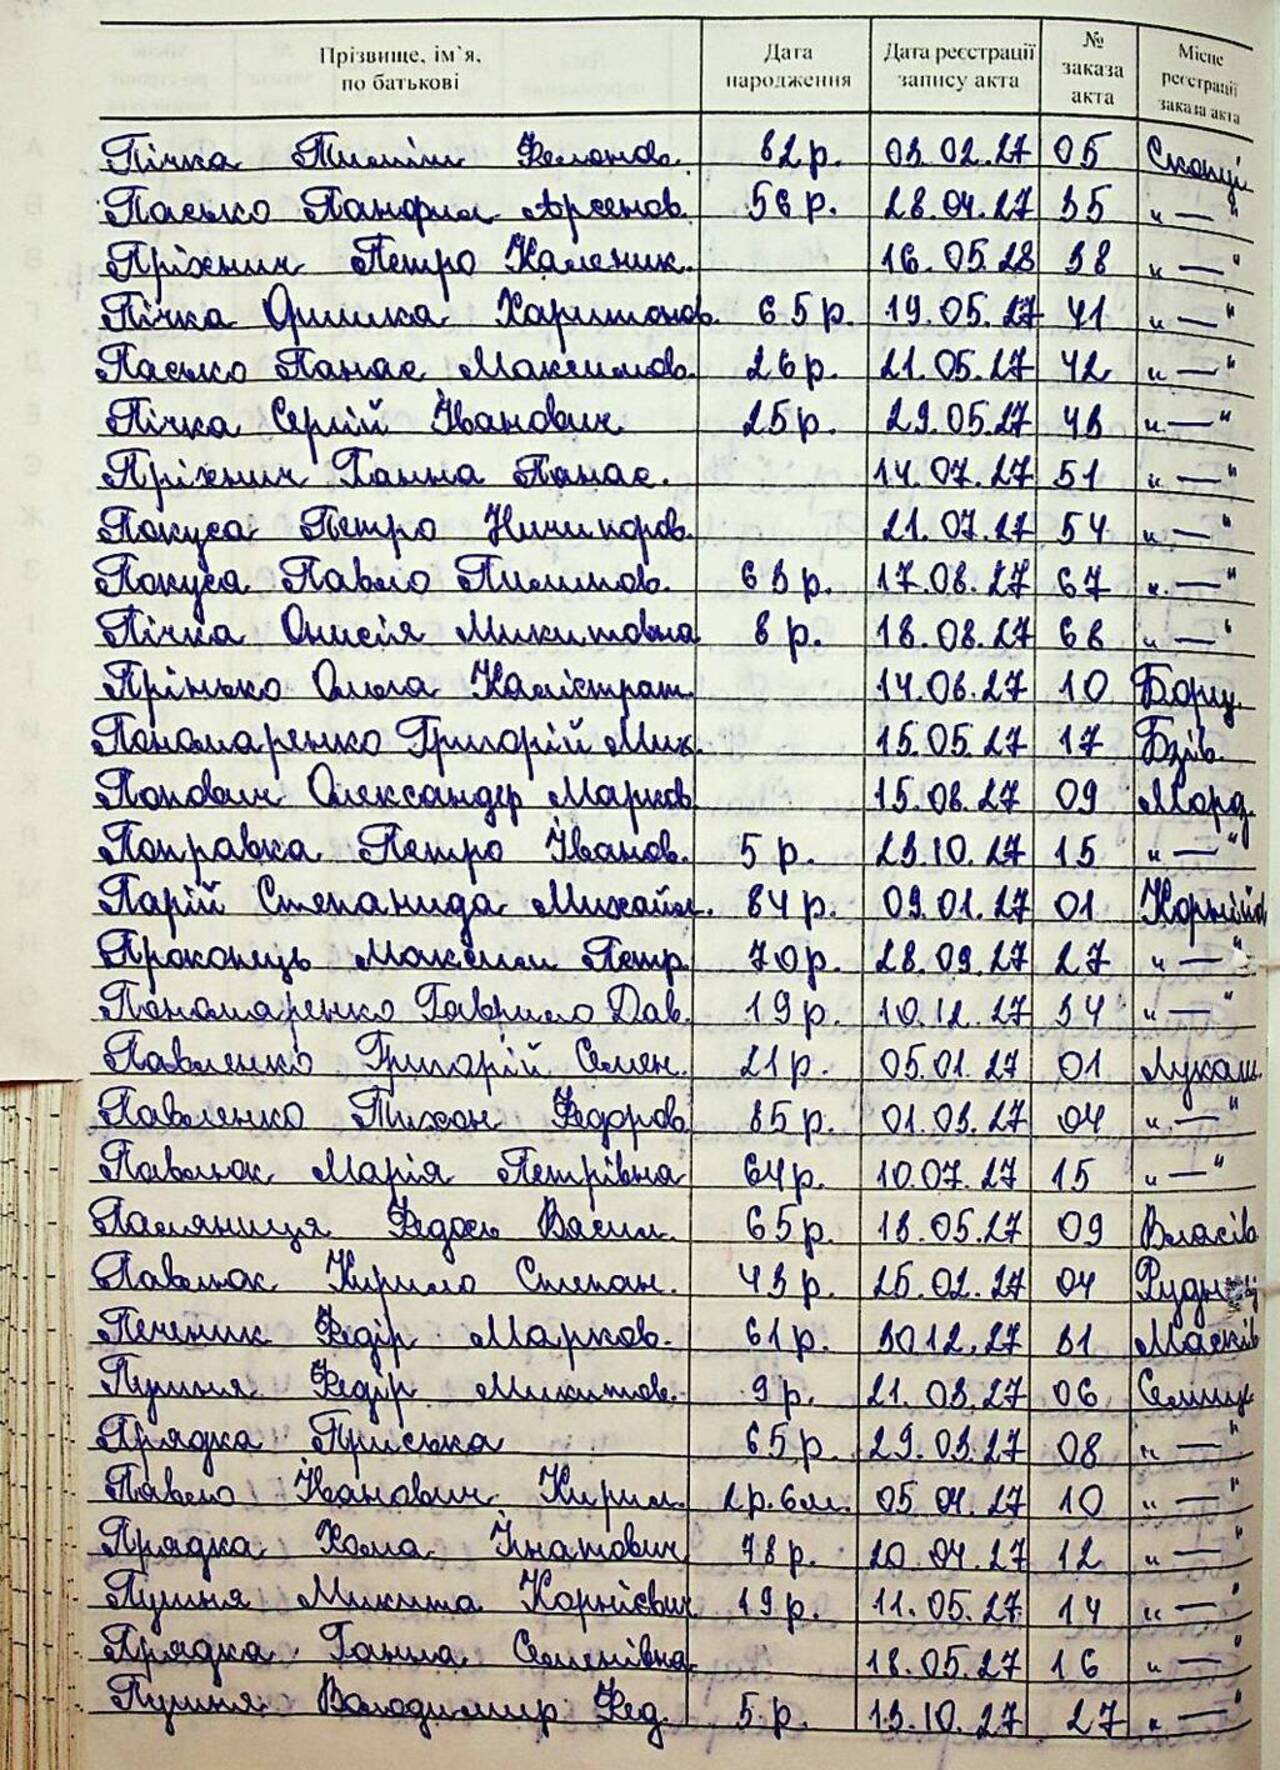 Прізвище, ім`я, по батькові Дата народження Дата реєстрації запису акта № заказа акта Місце реєстрації заказа акта
Пічка Пилипи 82 р. 03.02.27 05 Скопці
Пасько Панфил Арсенов. 56 р. 28.04.27 35 "—"
Пріхнич Петро Каленик. 16.05.28 38 "—"
Пічка Оришка Харитонов. 65 р. 19.05.27 41 "—"
Пасько Панас Максимов. 26 р. 21.05.27 42 "—"
Пічка Сергій Іванович 25 р. 29.05.27 43 "—"
Пріхнич Ганна Панас. 14.07.27 51 "—"
Покуса Петро Ничипоров. 21.07.27 54 "—"
Покуса Павло Пилипов. 63 р. 17.08.27 67 "—"
Пічка Онисія Микитовна 8 р. 18.08.27 68 "—"
Прінько Ольга Калістрат. 14.06.27 10 Борщ.
Пономаренко Григорій Мих. 15.05.27 17 Бзів.
Попович Олександр Марков 15.08.27 09 Морд.
Поправка Петро Іванов. 5 р. 23.10.27 15 "—"
Парій Степанида Михайл. 84 р. 09.01.27 01
Прокопець Максим Петр. 70 р. 28.09.27 27 "—"
Пономаренко Гаврило Дав. 19 р. 10.12.27 34 "—"
Павленко Григорій Семен. 21 р. 05.01.27 01 Лукаш.
Павленко Тихон Федоров. 85 р. 01.03.27 04 "—"
Павлюк Марія Петрівна 64 р. 10.07.27 15 "—"
Паляниця Федось Васил. 65 р. 13.05.27 09 Власів
Павлюк Кирило Степан. 43 р. 25.02.27 04
Печеник Федір Марков. 61 р. 30.12.27 31 Масків
Пушня Федір Микитов. 9 р. 21.03.27 06
Прядка Приська 65 р. 29.03.27 08 "—"
Павло Іванович Кирил. 2 р. 6 м. 05.04.27 10 "—"
Прядка Хома Ігнатович 78 р. 20.04.27 12 "—"
Пушня Микита Корнієвич 19 р. 11.05.27 14 "—"
Прядка Ганна Семенівна 18.05.27 16 "—"
Пушня Володимир Фед. 5 р. 13.10.27 27 "—"